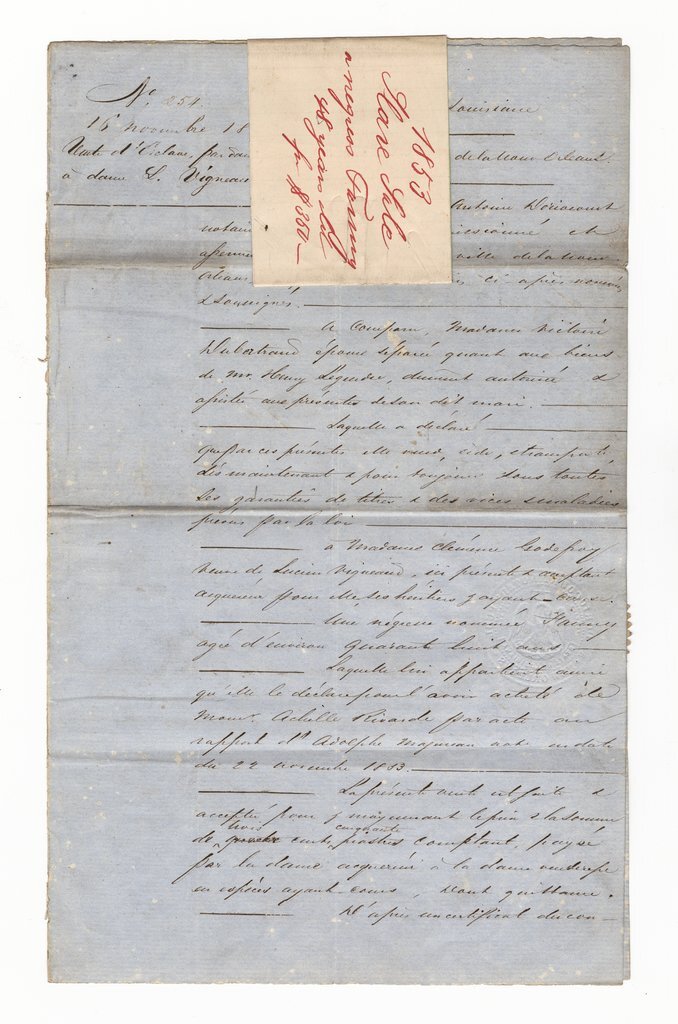 1853
Slave Sale
a negress Fanny
48 years old
for $350 —
No. 254.
16 novembre 18
Vente d'Esclave, par dame
à dame L. Vigneaud
Louisiane
de la Nouv Orleans.
Antoine Doriocourt
notaire
ville de la Nouv
Orleans
ci-après nommés
& soussignés.
A Comparu, Madame Victoire
Dubertrand épouse séparée quant aux biens
de Mr. Henry Légendre, dument autorisée &
assistée aux présentes de son dit mari.
Laquelle a déclaré
que par ces présentes elle vend, cède, & transporte
dès maintenant & pour toujours sous toutes
les garanties de titres & des vices & maladies
prévus par la loi
à Madame Clémence Godefroy
veuve de Lucien Vigneaud, ici présente & acceptant
acquéreur pour elle, ses héritiers & ayant-cause.
Une négresse nommée Fanny
agée d'environ quarante huit ans
Laquelle lui appartient ainsi
qu'elle le déclare pour l'avoir acheté de
Monsr. Achille Rivarde par acte au
rapport d' Adolphe Mazureau notre en date
du 22 novembre 1833.
La présente vente est faite &
acceptée pour & moyennant le prix & la somme
de trois cents cinquante piastres comptant, payé
par la dame acquéreur à la dame venderesse
en espèces ayant-cours, Dont quittance.
D'après un certificat du con-